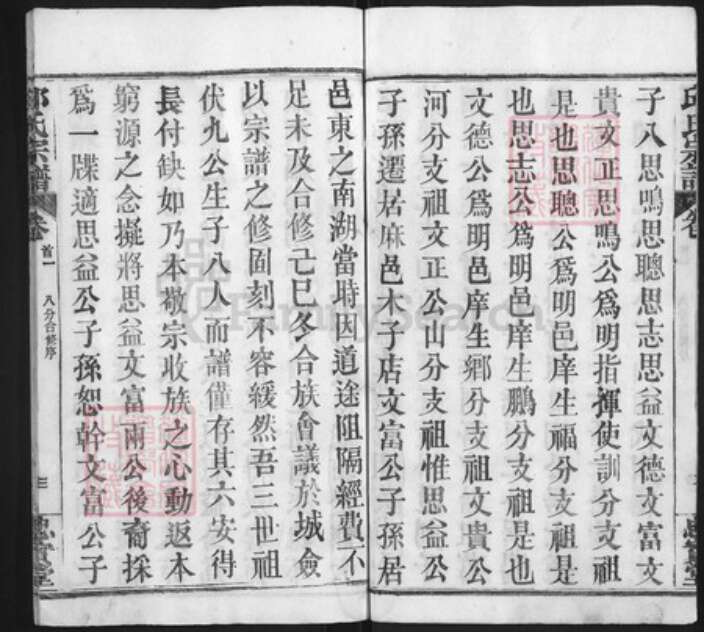 子八思鳴思聰思志思益文德文富文
貴文正思鳴公為明指揮使訓分支祖
是也思聰公為明邑庠生福分支祖是
也思志公為明邑庠生鵬分支祖是也
文德公為明邑庠生鄉分支祖文貴公
河分支祖文正公山分支祖惟思益公
子孫遷居麻邑木子店文富公子孫居
邑東之南湖當時因道途阻隔經費不
足未及合修己巳冬合族會議於城僉
以宗譜之修固刻不容緩然吾三世祖
伏九公生子八人而譜僅存其六安得
長付缺如乃本敬宗收族之心動返本
窮源之念擬將思益文富兩公後裔採
為一牒適思益公子孫恕幹文富公子
邱氏宗譜
卷
首一
八分合修序
三
FamilySearch